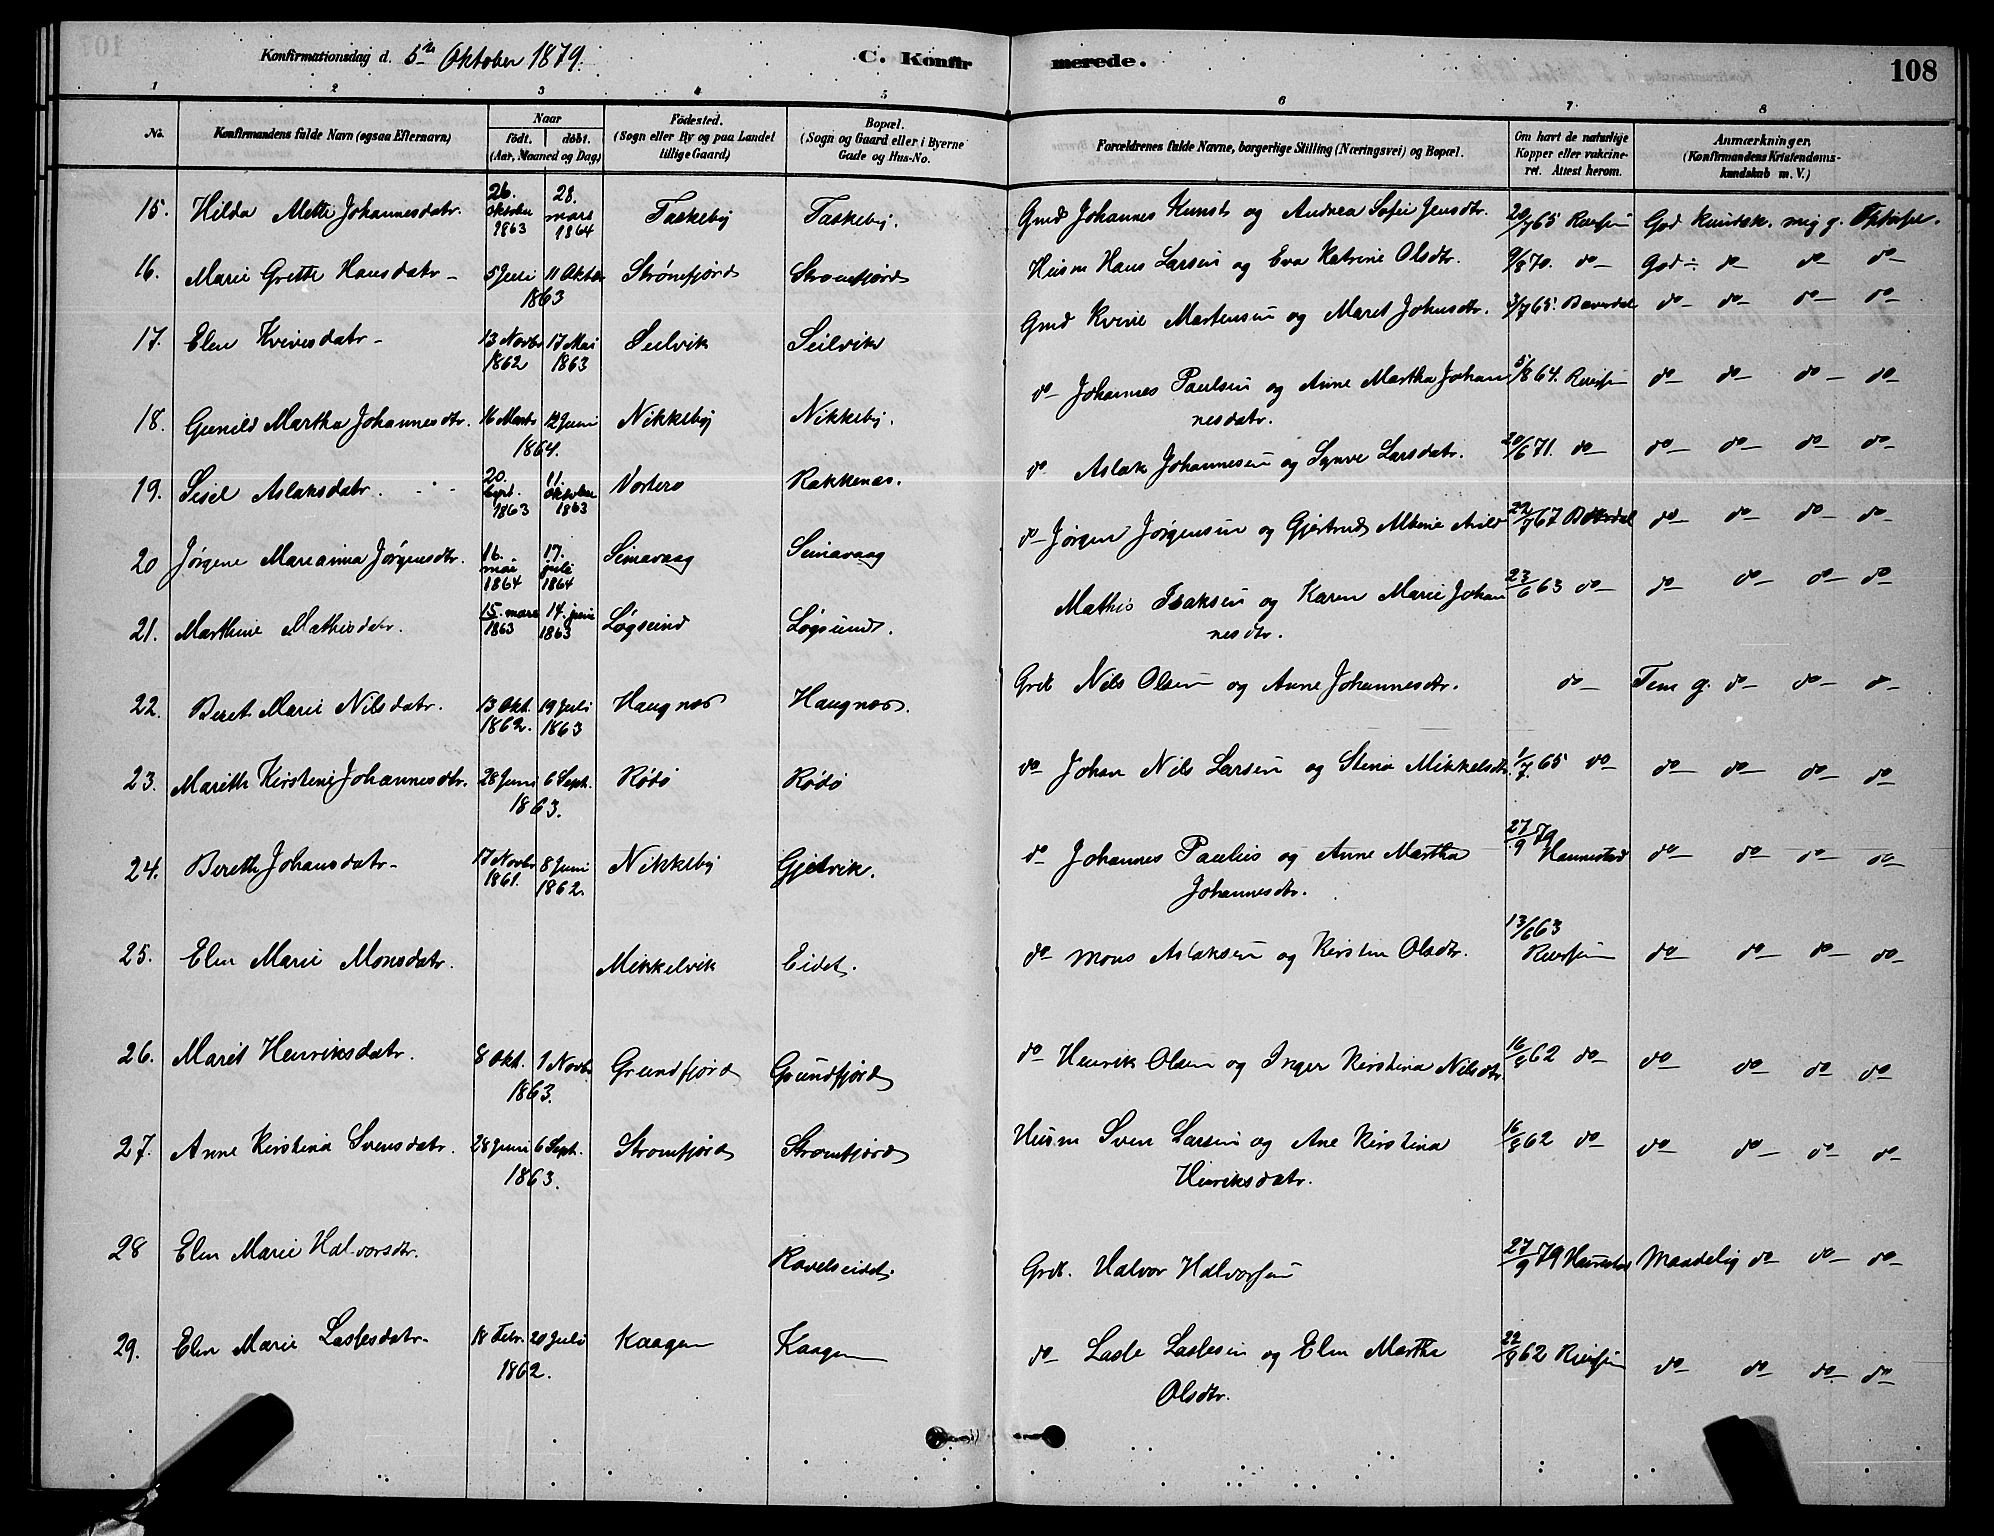 Konfirmationsdag d. 5te Oktober 1879.
C. Konfirmerede.
108
1 2 3 4 5 6 7 8
No.
Konfirmandens fulde Navn (ogsaa Efternavn)
Naar
født. døbt.
(Aar, Maaned og Dag)
Fødested.
(Sogn eller By og paa Landet
tillige Gaard)
Bopæl.
(Sogn og Gaard eller i Byerne
Gade og Hus-No.
Forældrenes fulde Navne, borgerlige Stilling (Næringsvei) og Bopæl.
Om havt de naturlige
Kopper eller vakcine-
ret. Attest herom.
Anmærkninger.
(Konfirmandens Kristendoms-
kundskab m. V.)
15. Hilda Mette Johannesdatr. 26. oktober 1863 28. mars 1864 Taskeby Taskeby. Gmd Johannes Kunst og Andrea Sofie Jensdtr. 20/7 65 God Kundsk. mig g. Opførsel.
16. Marie Grette Hansdatr 5 Juli 11 Oktbr 1863 Strømfjord Strømfjord Husm Hans Larsen og Eva Katrine Olsdtr. 9/8 70. do God do do do
17. Elen Kvivesdatr 13 Novbr 1862 17 Mai 1863 Seilvik Seilvik Gmd Kvive Martensen og Maret Johnsdtr. 3/7 65. do do do do
18. Gunild Martha Johannesdtr. 16 Marts 12 Juni 1864. Nikkeby Nikkeby. do Johannes Paulsen og Anne Martha Johannesdatr. 5/8 64. do do do do
19. Sisel Aslaksdatr. 20. Sept. 1863 11. oktober 1863 Vorterø Rakkenæs. do Aslak Johannesen og Synve Larsdatr. 20/6 71. do do do do do
20 Jørgene Marianna Jørgensdtr. 16. mai 1864 17. juli 1864 Seinavaag Seinavaag do Jørgen Jørgensen og Gjertrud Albine 22/7 67 do do do do
21. Marthine Mathisdatr. 15. mars 1863 14. juni 1863 Løgsund Løgsund. Mathis Isaksen og Karen Marie Johannesdtr. 23/6 63 do do do do do
22. Beret Marie Nilsdatr. 13 Okt. 1862. 19 Juli 1863 Haugnæs Haugnæs. Nils Olsen og Anne Johannesdtr. do Tem g. do do do
23. Marith Kirstine Johannesdtr. 28 Juni 6 Sept. 1863. Rödö Rödö do Johan Nils Larsen og Stina Mikkelsdtr. 1/7 65 do do do do do
24. Bereth Johansdatr 17 Novbr 1861. 8 Juni 1862. Nikkeby Gjetvik. do Johannes Paulus og Anne Martha Johannesdtr. 27/9 79 do do do do
25. Elen Marie Monsdatr. Mikkelvik Eidet. do Mons Aslaksen og Kirsten Olsdtr. 13/6 63 do do do do
26. Marit Henriksdatr. 8 Okt. 1 Novbr. 1863. Grundfjord Grundfjord do Henrik Olsen og Inger Kirstina Nilsdtr. 16/8 62 do do do do do
27. Anne Kirstina Svensdatr. 28 Juni 6 Sept. 1863. Strømfjord Strømfjord Husm Sven Larsen og Ane Kirstina Henriksdatr. 16/8 62 do do do do do
28 Elen Marie Halvorsdtr. Ravelseidet. Halvor Halvorsen 27/9 79 Maadelig do do do
29. Elen Marie Laslesdatr 18 Febr. 20 Juli 1862. Kaagen Kaagen do Lasle Laslesen og Elen Martha Olsdtr. 22/8 62 do do do do